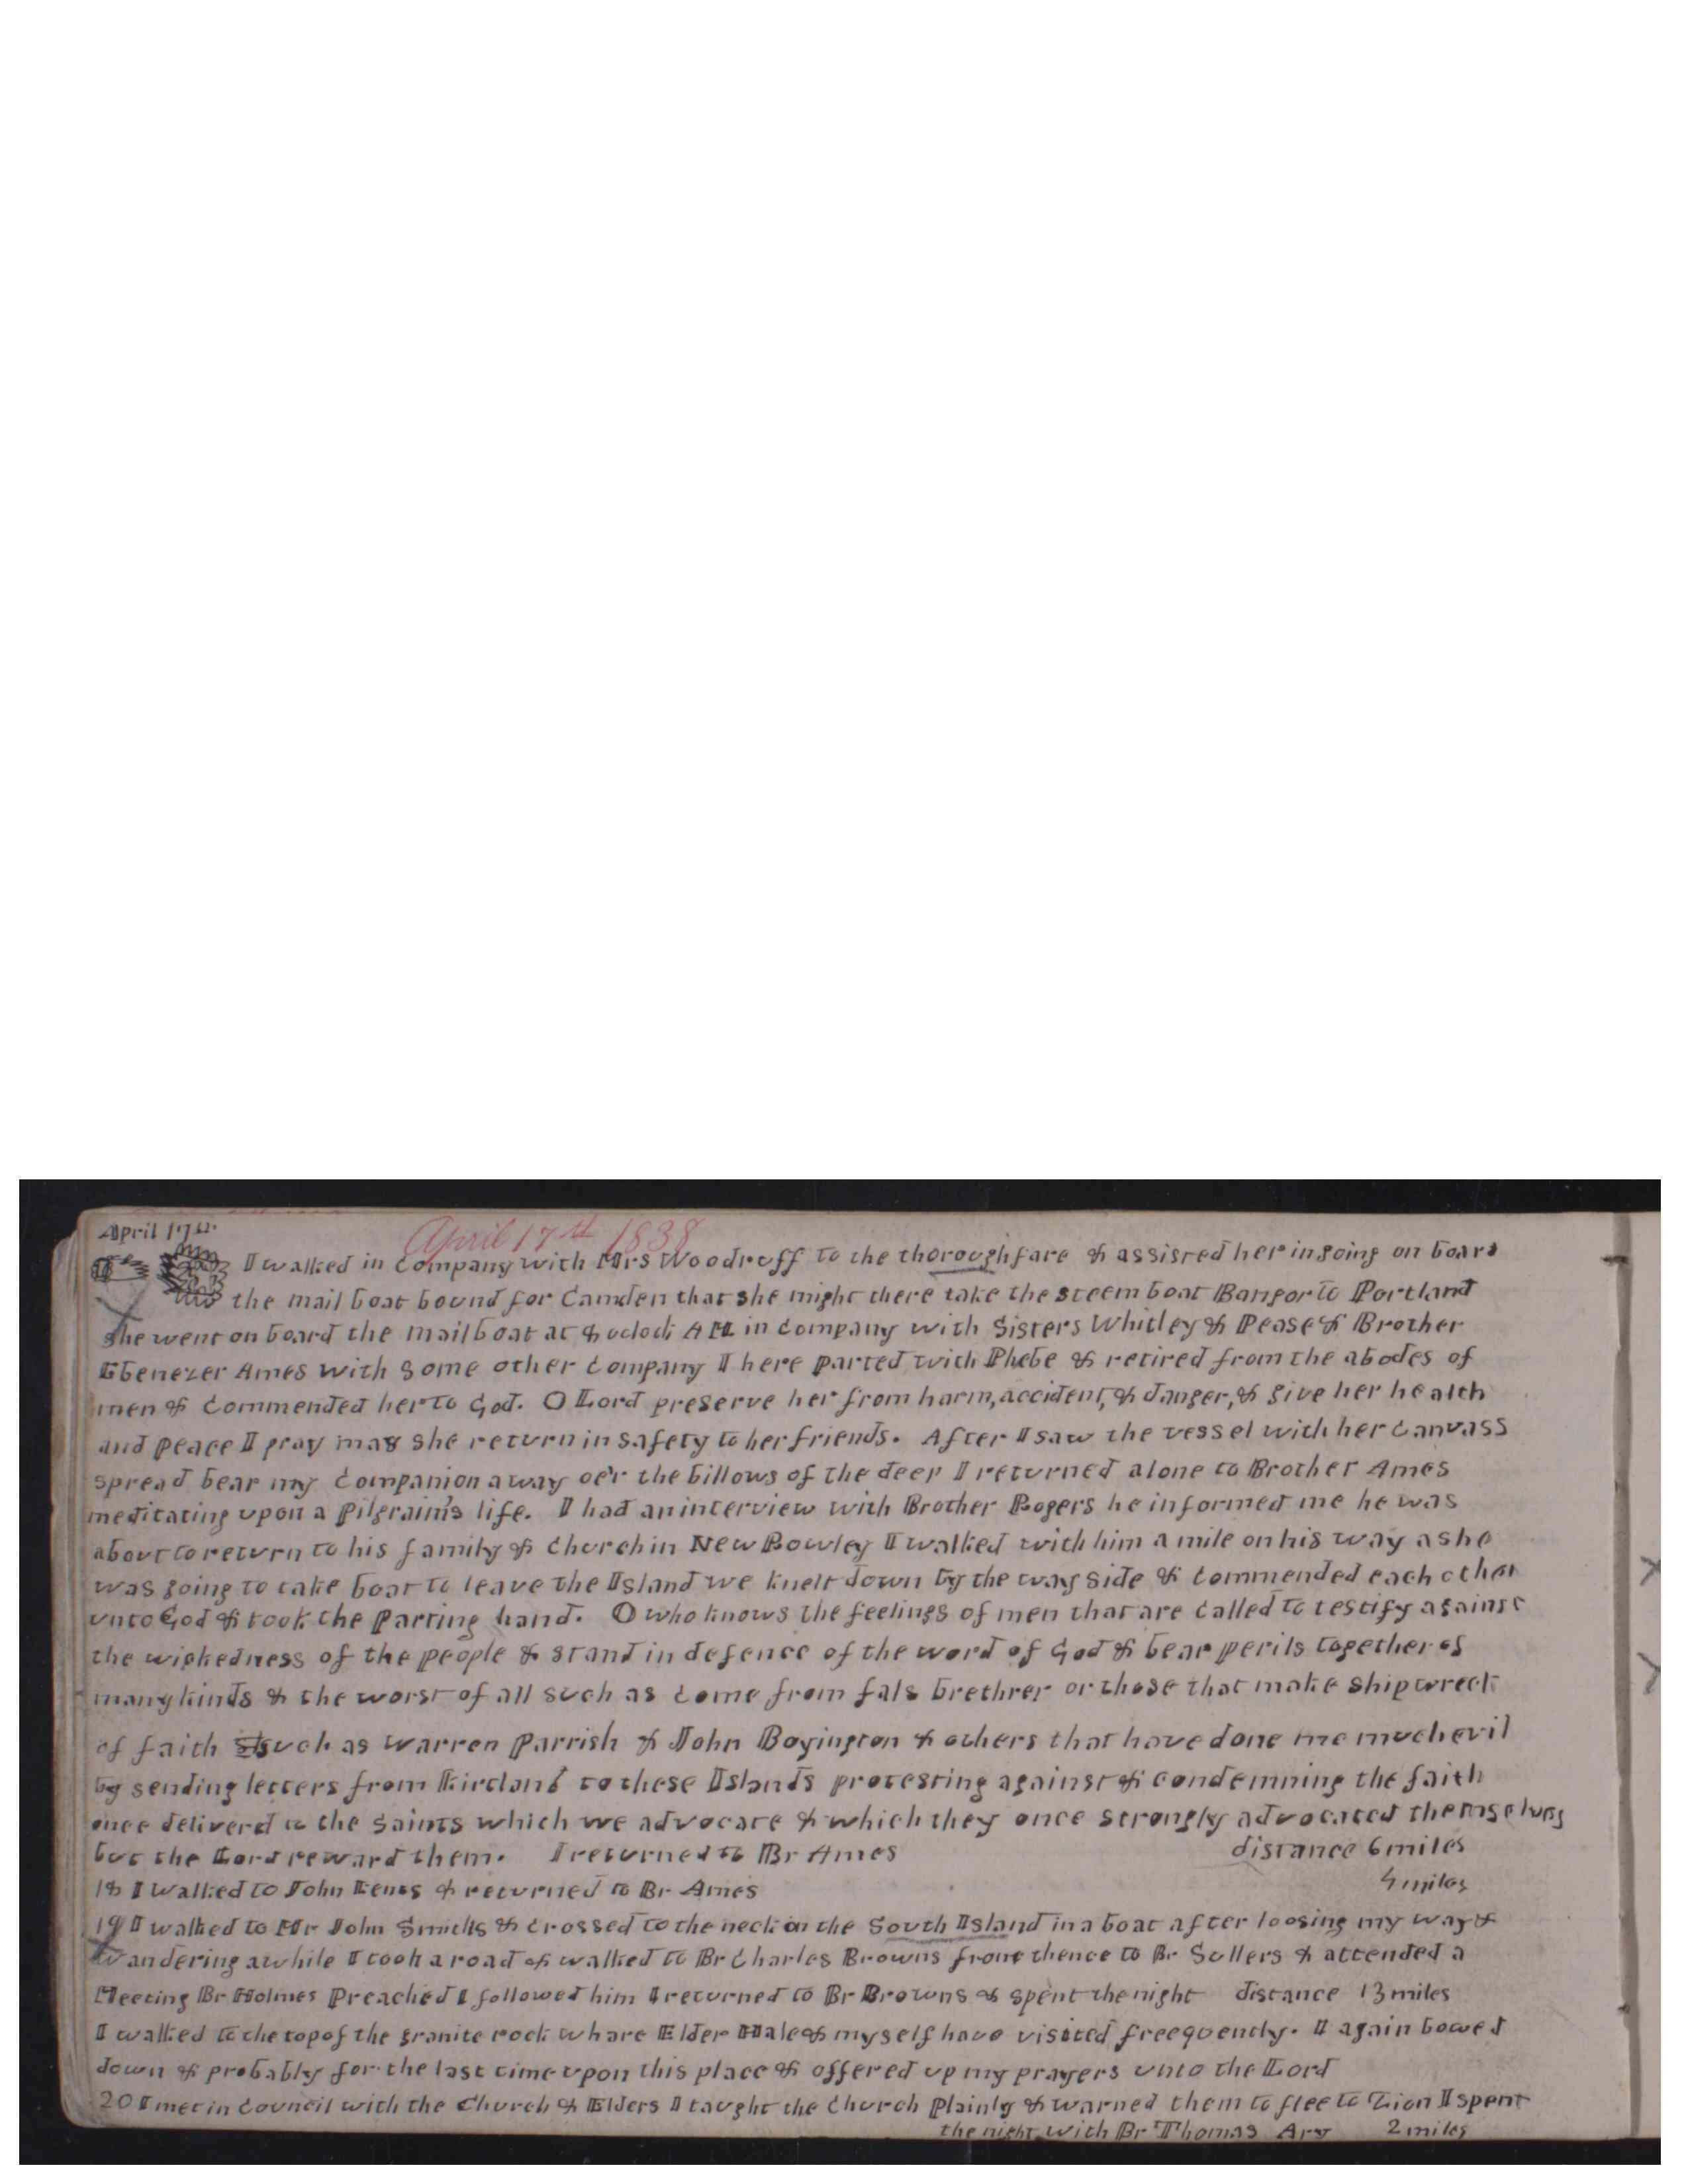 April 17th
April 17th 1838
I walked in Company with Mrs Woodruff to the thoroughfare & assisted her in going on board
the mail boat bound for Camden that she might there take the steem boat Bangor to Portland
she went on board the mail boat at 8 oclock AM in Company with Sisters Whitley & Pease & Brother
Ebenezer Ames with some other Company I here parted with Phebe & retired from the abodes of
men & Commended her to God. O Lord preserve her from harm, accident, & danger, & give her health
and peace I pray may she return in safety to her friends. After I saw the vessel with her Canvass
spread bear my Companion away oe'r the billows of the deep I returned alone to Brother Ames
meditating upon a Pilgraim's life. I had an interview with Brother Rogers he informed me he was
about to return to his family & Church in New Rowley I walked with him a mile on his way as he
was going to take boat to leave the Island we knelt down by the way side & Commended each other
unto God & took the Parting hand. O who knows the feelings of men that are Called to testify against
the wickedness of the people & stand in defence of the word of God & bear perils together of
many kinds & the worst of all such as Come from fals brethren or those that make shipwreck
of faith such as Warren Parrish & John Boyington & others that have done me much evil
by sending letters from Kirtland to these Islands protesting against & condemning the faith
once deliverd to the Saints which we advocate & which they once strongly advocated themselves
but the Lord reward them. I returned to Br Ames distance 6 miles
18 I walked to John Kents & returned to Br Ames 4 miles
19 I walked to Mr John Smiths & Crossed to the neck on the South Island in a boat after loosing my way &
Wandering awhile I took a road & walked to Br Charles Browns from thence to Br Sollers & attended a
Meeting Br Holmes Preached I followed him I returned to Br Browns & spent the night distance 13 miles
I walked to the top of the granite rock whare Elder Hale & myself have visited freequently. I again bowed
down & probably for the last time upon this place & offered up my prayers unto the Lord
20 I met in Council with the Church & Elders I taught the Church Plainly & warned them to flee to Zion I spent
the night with Br Thomas Ary 2 miles